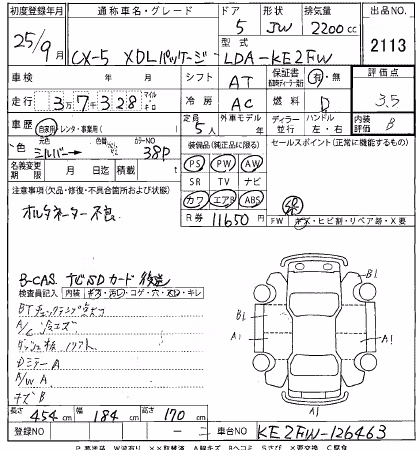 初度登録年月 通称車名・グレード ドア 形状 排気量 出品NO.
25/9月 CX-5 XDLパッケージ 5 SW 2200cc 2113
型式 LDA-KE2FW
車検 年 月 シフト AT 保証書 有・無 評価点
走行 3万7千328 マイル キロ 冷房 AC 燃料 D 3.5
車歴 自家用 レンタ・事業用( ) 定員 5人 外車モデル 年 ディーラー 並行 ハンドル 左・右 内装評価 B
色 元色 シルバー 色替 カラーNO 38P 装備品(純正品に限る) セールスポイント(正常に機能するもの)
名義変更期限 月 日迄 積載 t
PS PW AW
SR TV ナビ
カワ エアB ABS
R券 11650円
注意事項(欠品・修復・不具合箇所および状態)
オルタネーター不良
FW キズ・ヒビ割・リペア跡・X要
B-CAS ナビSDカード 後送
検査員記入 内装 キズ・汚レ・コゲ・穴・スレ・キレ
BTチェックランプ点灯
A/C 冷エズ
Dミラー A
A/W A
キズ B
B1
A1
A1
B1
A1
長さ 454cm 幅 184cm 高さ 170cm
登録NO 車台NO KE2FW-126463